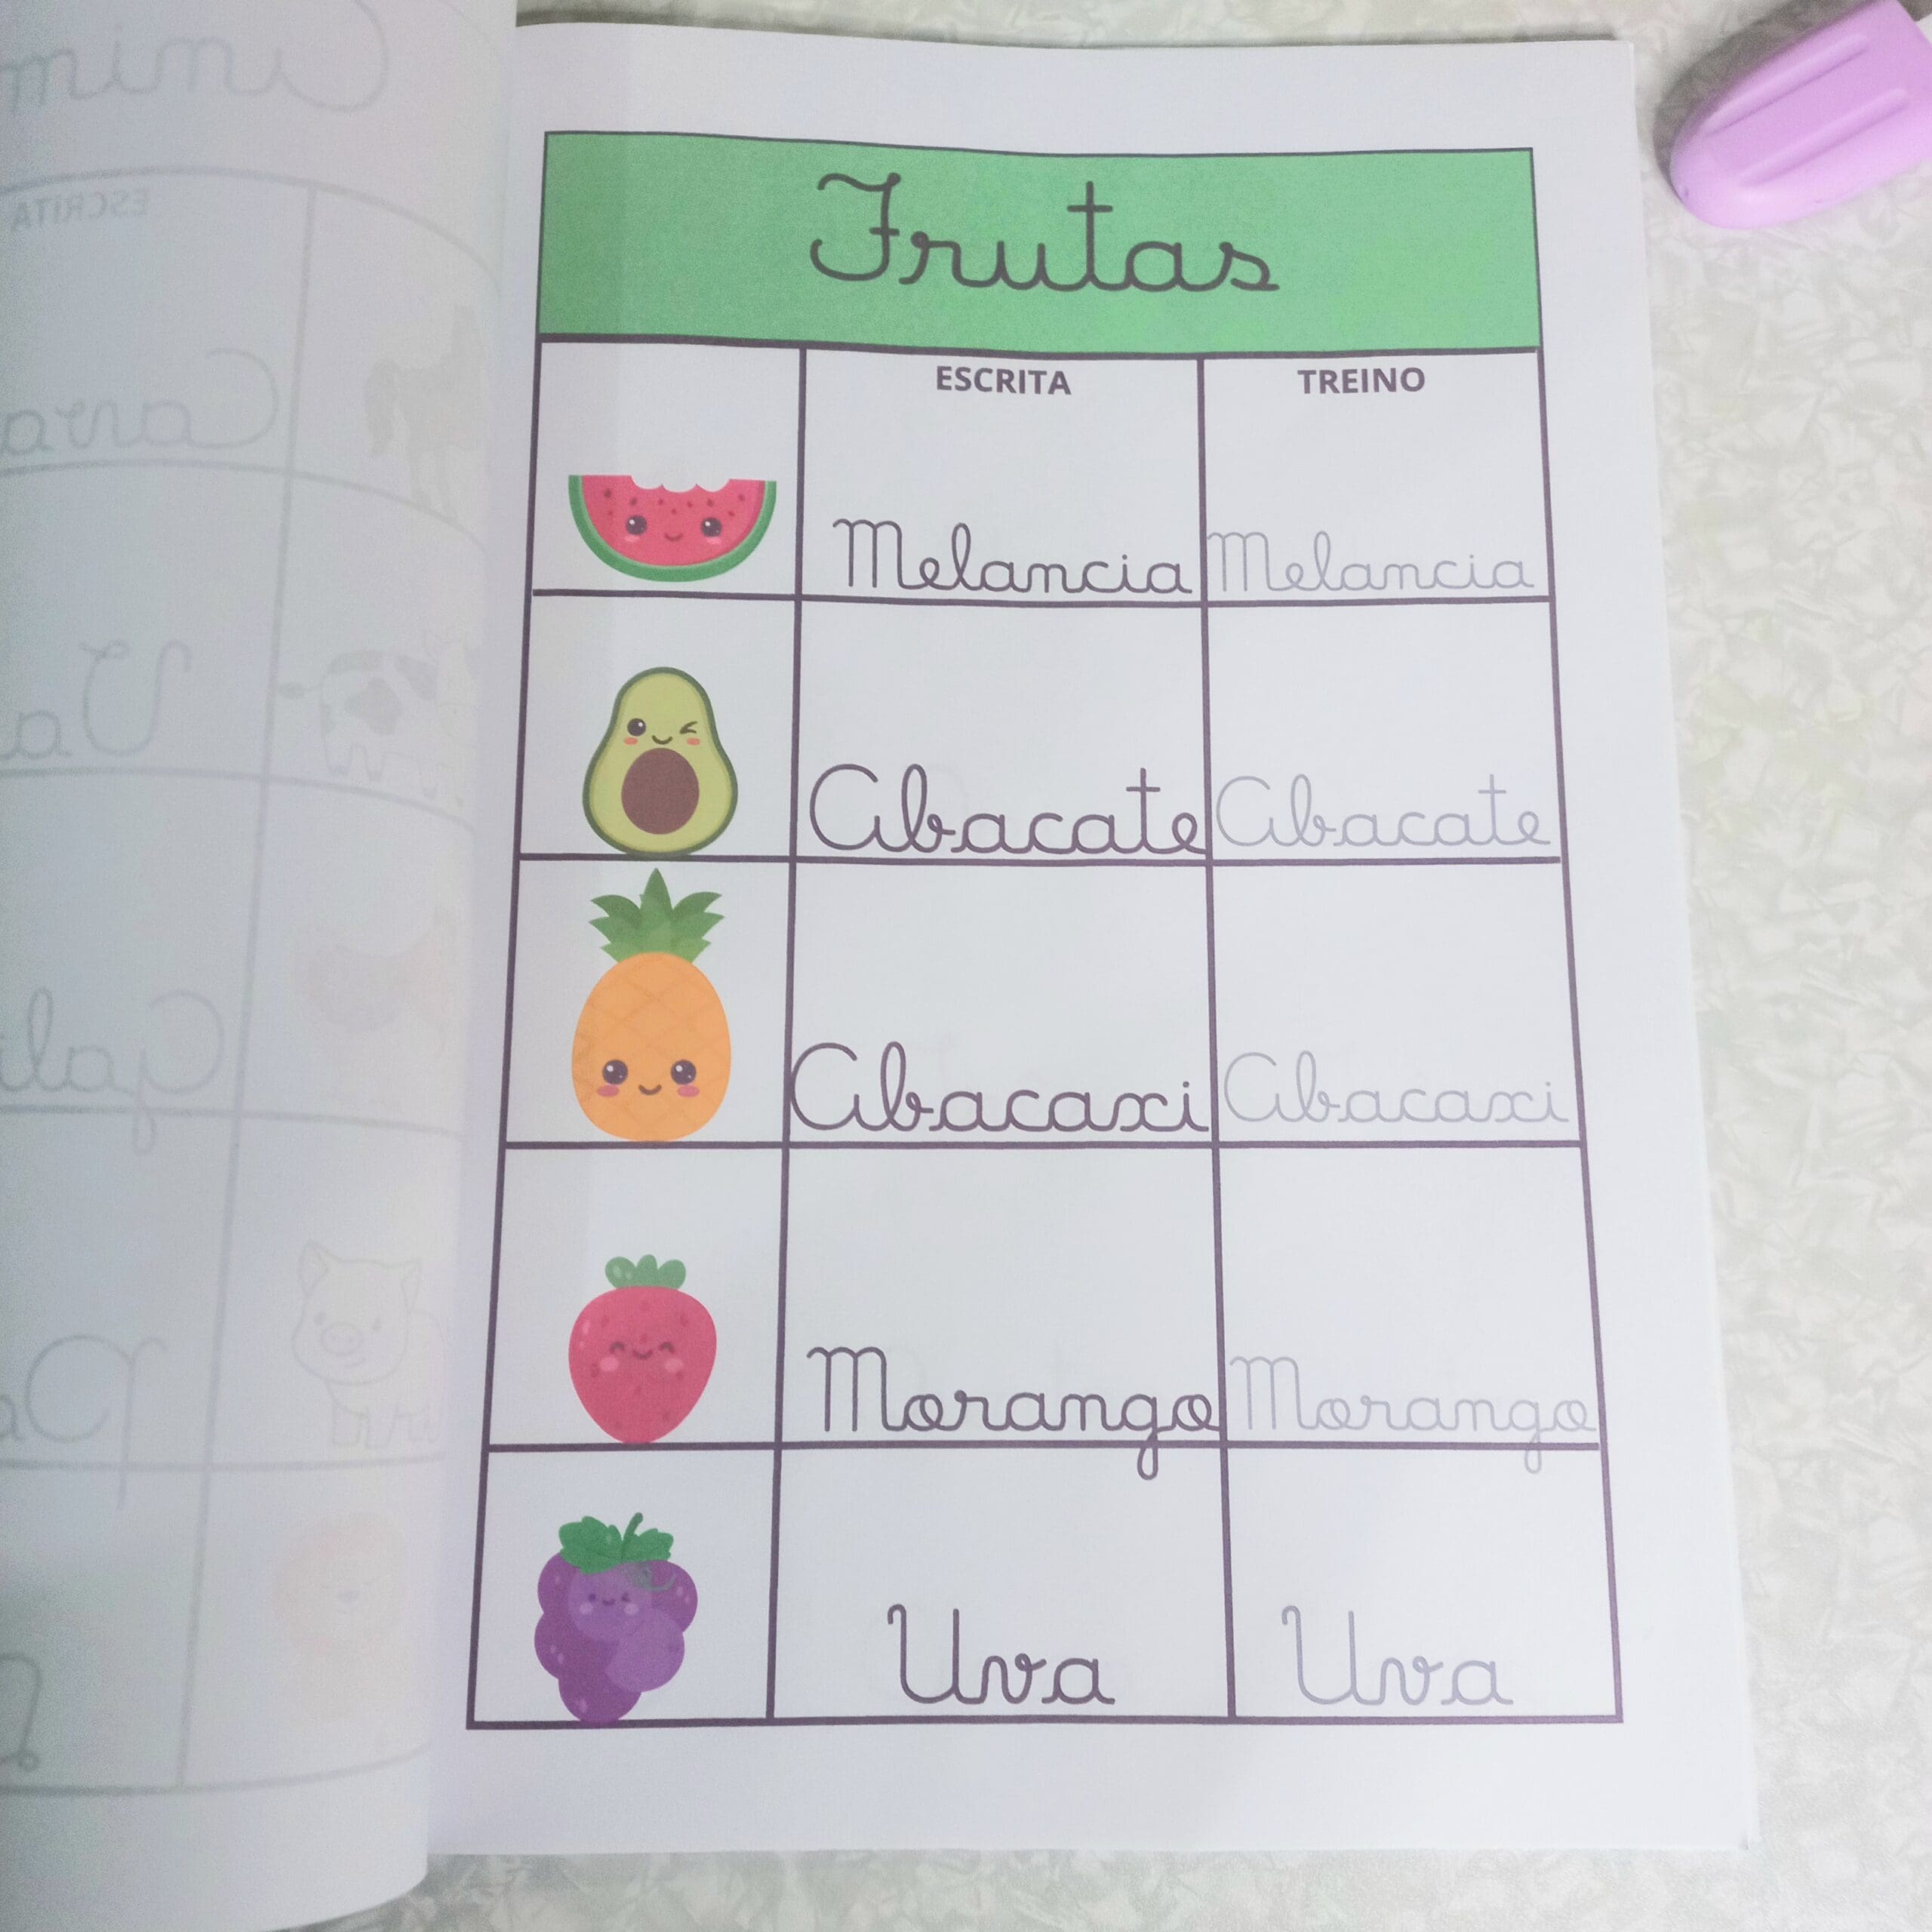 Frutas
ESCRITA TREINO
Melancia Melancia
Abacate Abacate
Abacaxi Abacaxi
Morango Morango
Uva Uva
ESCRITA